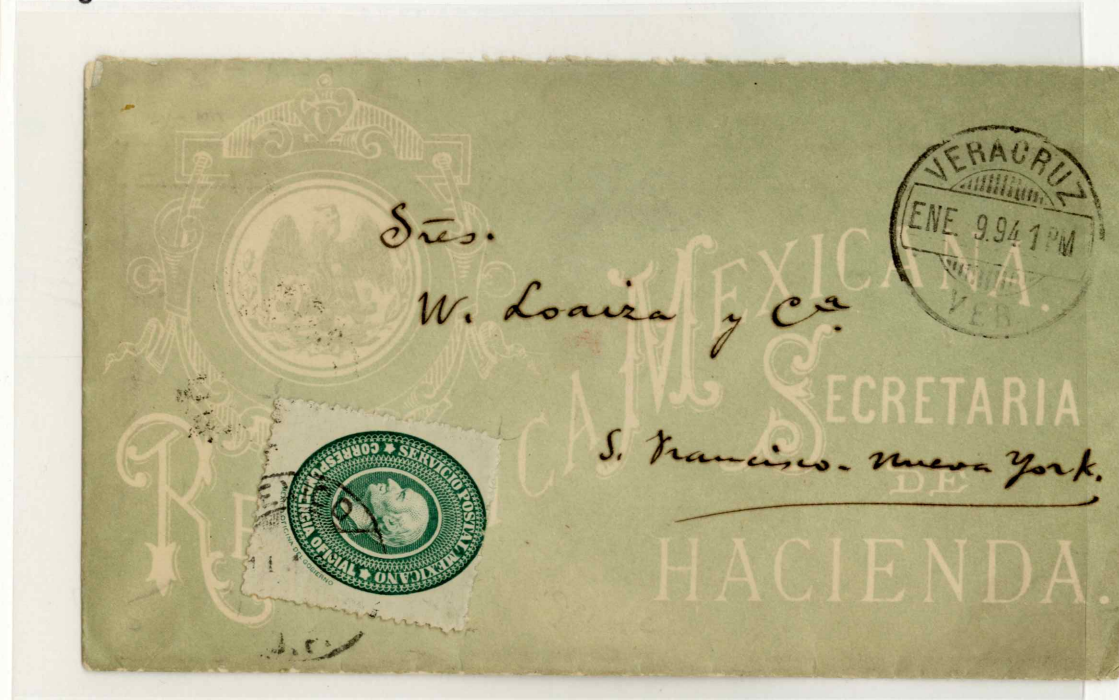 VERACRUZ
ENE. 9.94 1 PM
VER
Sres.
W. Loaiza y Cª
S. Francisco - Nueva York.
REPUBLICA MEXICANA.
SECRETARIA
DE
HACIENDA.
SERVICIO POSTAL MEXICANO
CORRESPONDENCIA OFICIAL